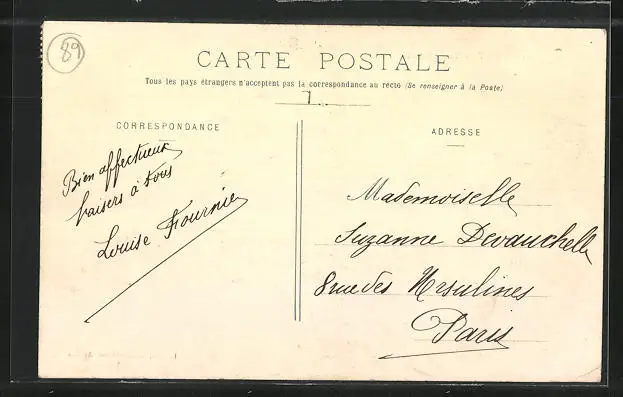 89
CARTE POSTALE
Tous les pays étrangers n'acceptent pas la correspondance au recto (Se renseigner à la Poste)
CORRESPONDANCE
ADRESSE
Bien affectueux
baisers à tous
Louise Fournier
Mademoiselle
Suzanne Devauchelle
8 rue des Ursulines
Paris